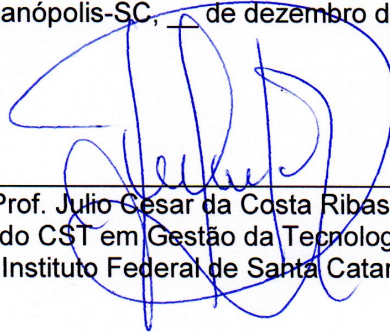 anópolis-SC, __ de dezembro d
Prof. Julio César da Costa Ribas
do CST em Gestão da Tecnolog
Instituto Federal de Santa Catar